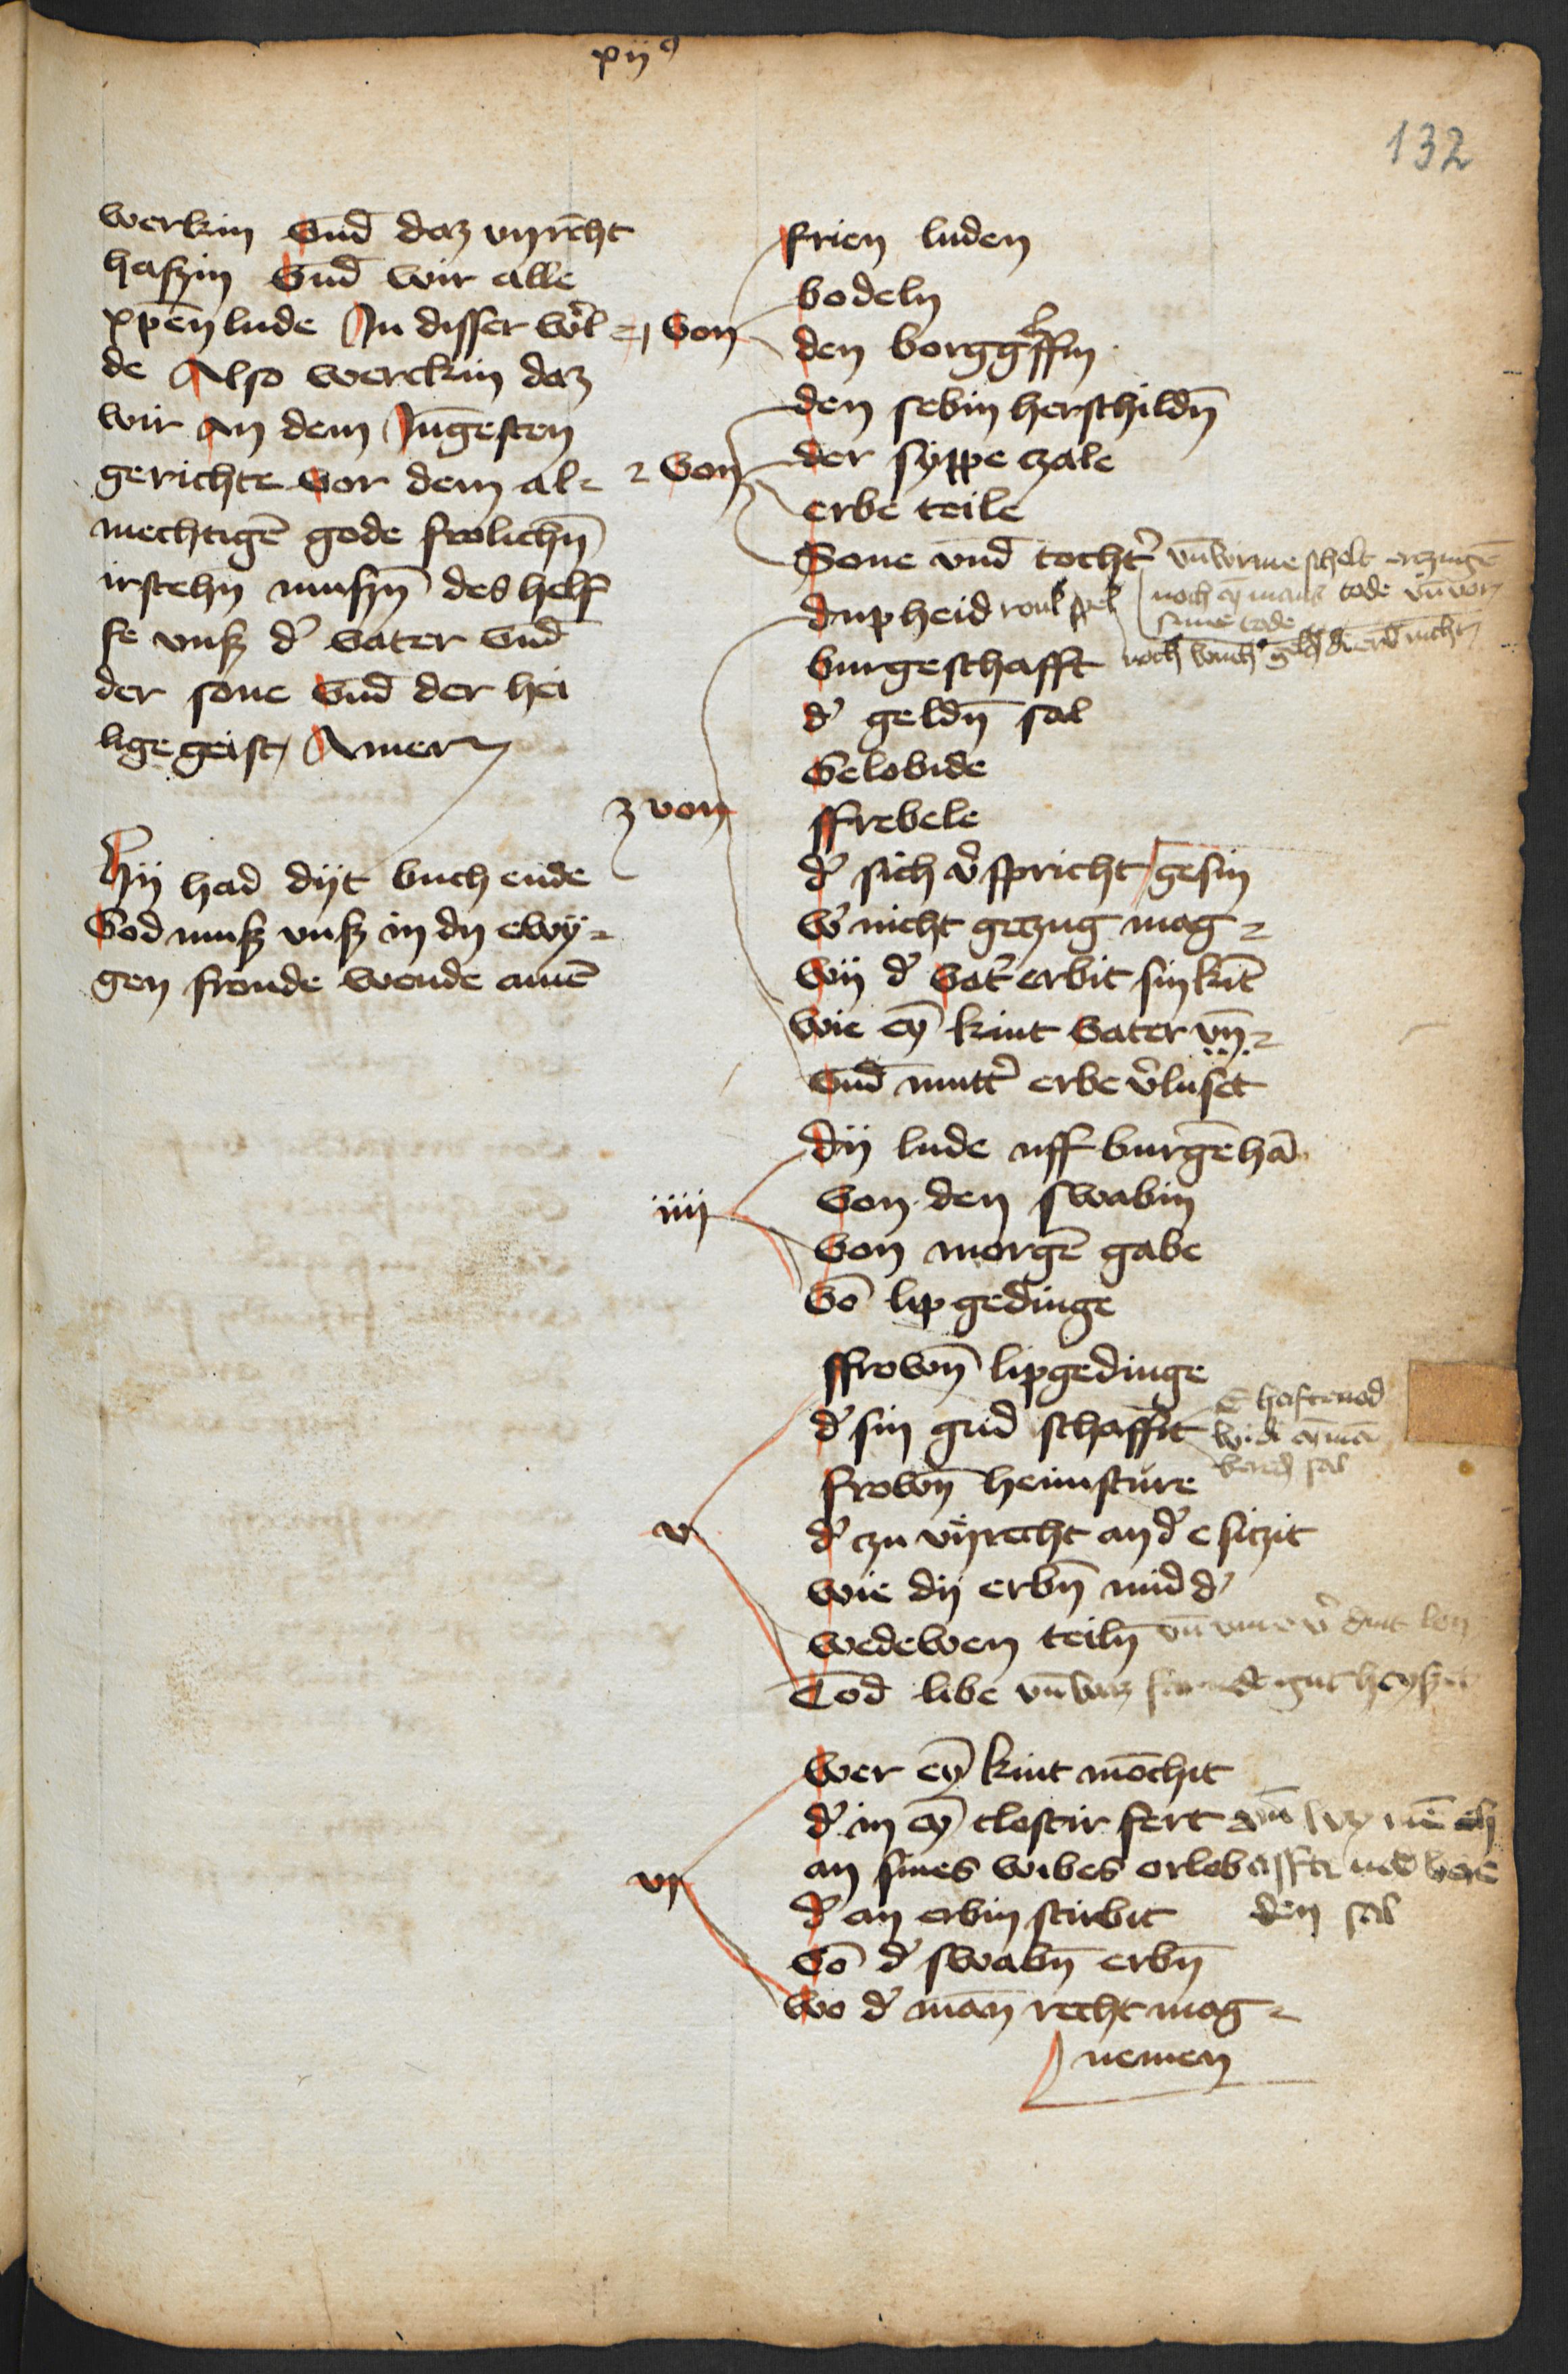 xij⁹
132
werkin vnd daz vnrecht
haszin vnd wir alle
xpen lude In disser werl
de Also werckin daz
wir an dem Jungesten
gerichte vor dem al-
mechtigē gode frolichn̄
irstehn muszn̄ des helf
fe vnsz d' vater vnd
der sone vnd der hei
lige geist Amen
Hy had dyt buch ende
God musz vnsz in dy ewy-
gen freude wende amē
1 von
frien luden
bodeln
den borggrffin
2 von
den sebin herschildn̄
der syppe czale
erbe teile
Sone vnd tocht'
noch eȳ mans tode
sime tode
3 von
dupheid
burgeschafft
d' geldn̄ sal
Gelobide
ffrebele
d' sich v'spricht gesin
w' nicht geczug mag
wy d' vat' erbit sin kīt
wie eȳ kint vater vn̄
vnd mutt' erbe v'luset
iiij
dy lude vff burgē hā
von den swabin
von morgē gabe
vō lip gedinge
v
ffrown̄ lipgedinge
d' sin gud schaffit
E haftenod
sal
frown̄ heimsture
d' zu vnrecht an d' e sitzit
wie dy erbn̄ mid d'
wedewen teiln̄
Tod libe vn̄ waz gut heyszet
vj
wer eȳ kint mochit
d' in eȳ clostir fert
an sines wibes orlob
d' an erbin stirbit
den sal
vō d' swabn̄ erbn̄
wo d' man recht mag
nemen